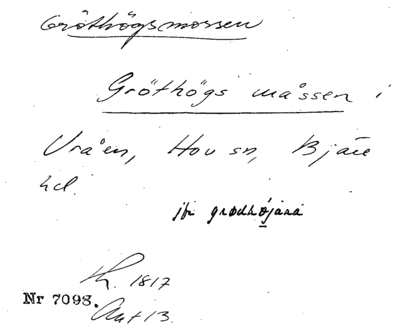 Gröthögsmossen
Gröthögs måssen i
Vråen, Hov sn, Bjäre
hd.
jfr grødhöjana
Lk. 1817
Nr 7098.
Akt 13.